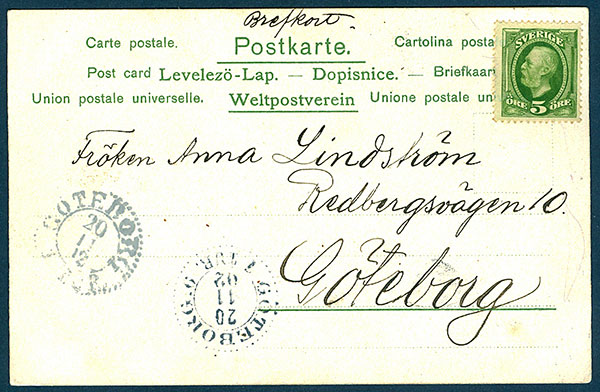 Brefkort.
Carte postale. Postkarte. Cartolina posta
Post card Levelező-Lap. — Dopisnice. — Briefkaar
Union postale universelle. Weltpostverein Unione postale un
SVERIGE
ÖRE 5 ÖRE
Fröken Anna Lindström
Redbergsvägen 10.
Göteborg
GÖTEBORG
20
11
GÖTEBORG
20
11
02